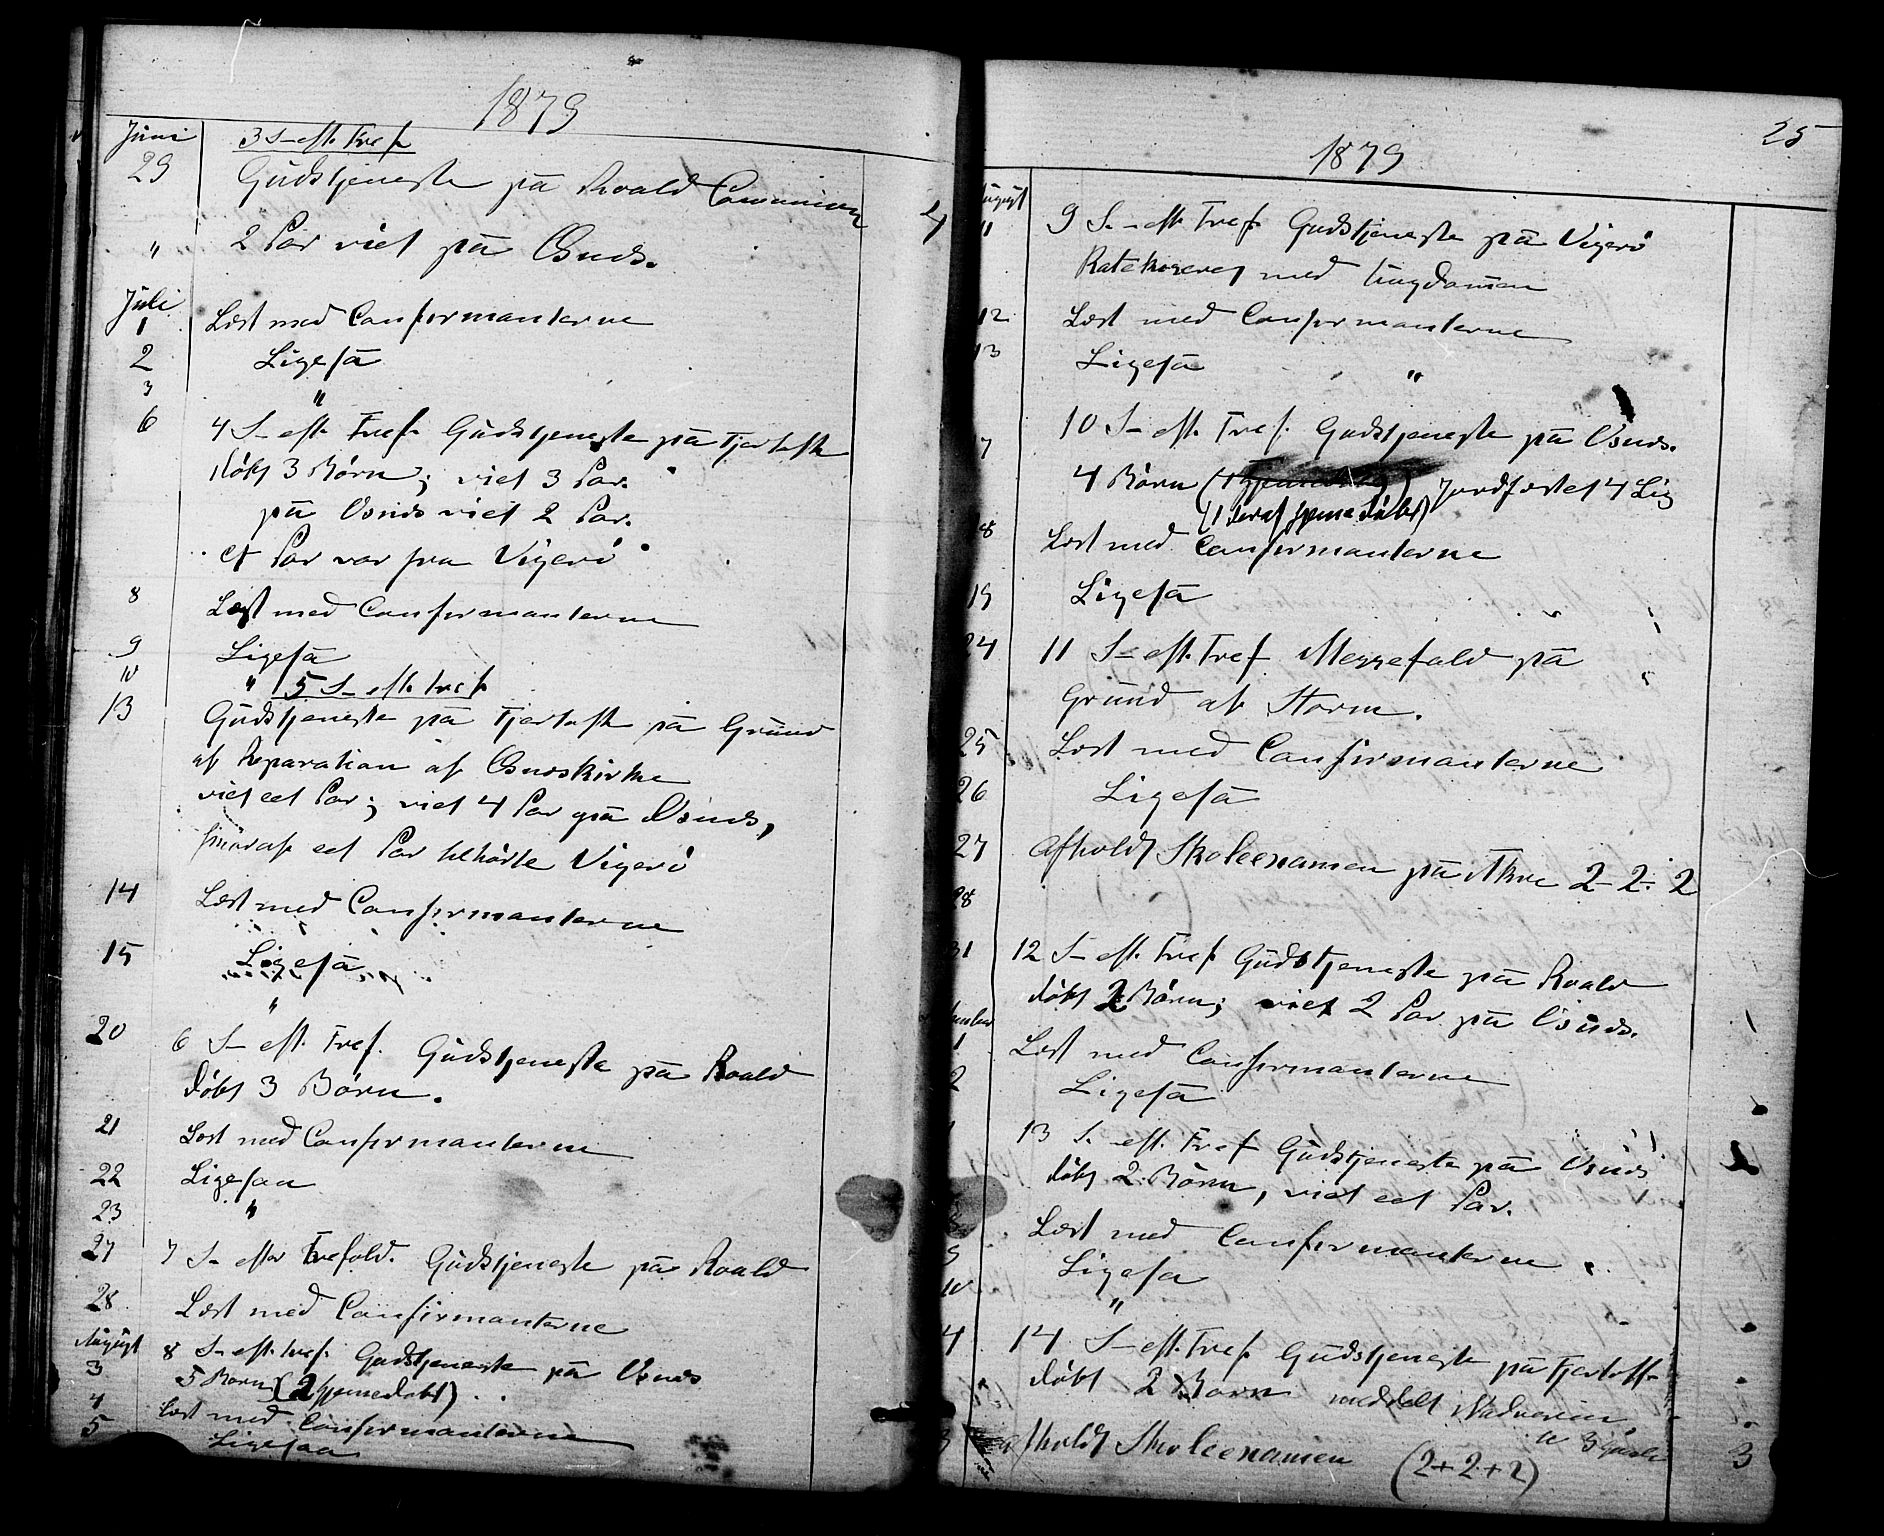 1879
Juni 3 S- eft. Tref.
29 Gudstjeneste på Roald Communion 4
" 2 Par viet på Osnes.
Juli
1 Læst med Confirmanterne
2 Ligeså
3 "
6 4 S- eft. Tref. Gudstjeneste på Fjertoft
døbt 3 Børn; viet 3 Par.
på Osnes viet 2 Par.
et Par var fra Vigerö
8 Læst med Confirmanterne
9 Ligeså
10 " 5 S- eft. Tref.
13 Gudstjeneste på Fjertoft på Grund
af Reparation af Osneskirke
viet eet Par; viet 4 Par på Osnes,
hvoraf eet Par tilhørte Vigerö
14 Læst med Confirmanterne
15 Ligeså
"
20 6 S- eft. Tref. Gudstjeneste på Roald
døbt 3 Børn.
21 Læst med Confirmanterne
22 Ligesaa
23 "
27 7 S- efter Trefold. Gudstjeneste på Roald
28 Læst med Confirmanterne
August
3 8 S- eft. Tref. Gudstjeneste på Osnes
5 Børn (2 hjemedøbt)
4 Læst med Confirmanterne
5 Ligesaa
25
1879
August
11 9 S- eft. Tref. Gudstjeneste på Vigerö
Katekiseret med Ungdommen
12 Læst med Confirmanterne
13 Ligeså "
7 10 S- eft. Tref. Gudstjeneste på Osnes.
4 Børn Jordfæstet 4 Lig
(1 deraf hjemedøbt)
18 Læst med Confirmanterne
19 Ligeså
24 11 S- eft. Tref. Messefald på
Grund af Storm.
25 Læst med Confirmanterne
26 Ligeså
27 Afholdt Skoleexamen på 2-2-2
28
31 12 S- eft. Tref. Gudstjeneste på Roald
døbt 2 Børn; viet 2 Par på Osnes.
1 Læst med Confirmanterne
2 Ligeså
13 S- eft. Tref Gudstjeneste på Osnes
døbt 2 Børn, viet eet Par.
8 Læst med Confirmanterne
9 Ligesa
10 "
4 14 S- eft. Tref. Gudstjeneste på Fjertoft
døbt 2 Børn meddelt Nadveren
3
Afholdt Skoleexamen (2+2+2) 3